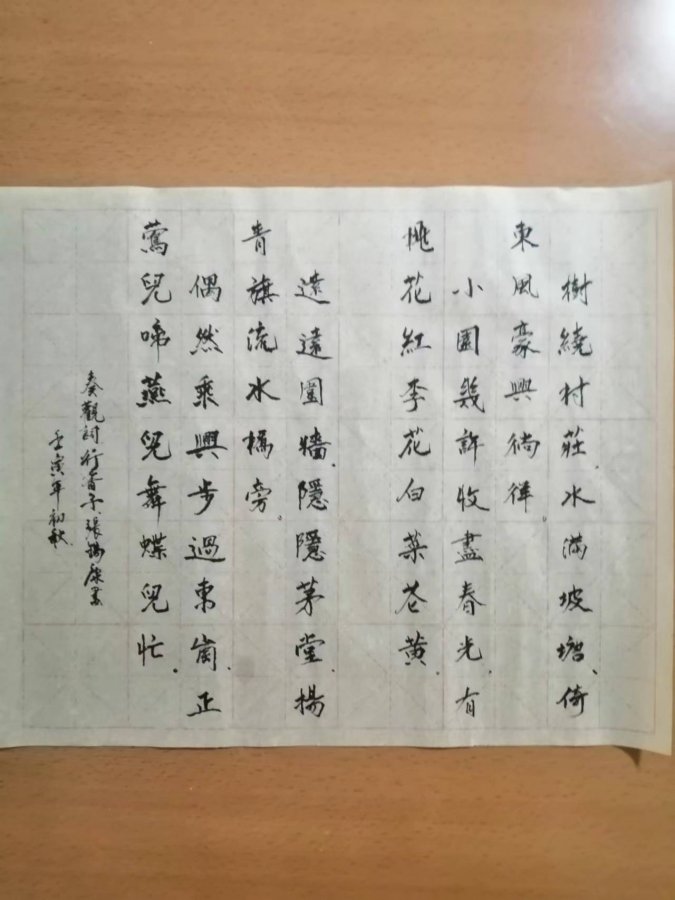 樹繞村莊、水滿坡塘、倚
東風豪興徜徉。
小園幾許收盡春光、有
桃花紅李花白菜花黃.
遠遠圍牆、隱隱茅堂、揚
青旗流水橋旁。
偶然乘興步過東崗、正
鶯兒啼燕兒舞蝶兒忙.
秦觀詞行香子張康書
壬寅年初秋